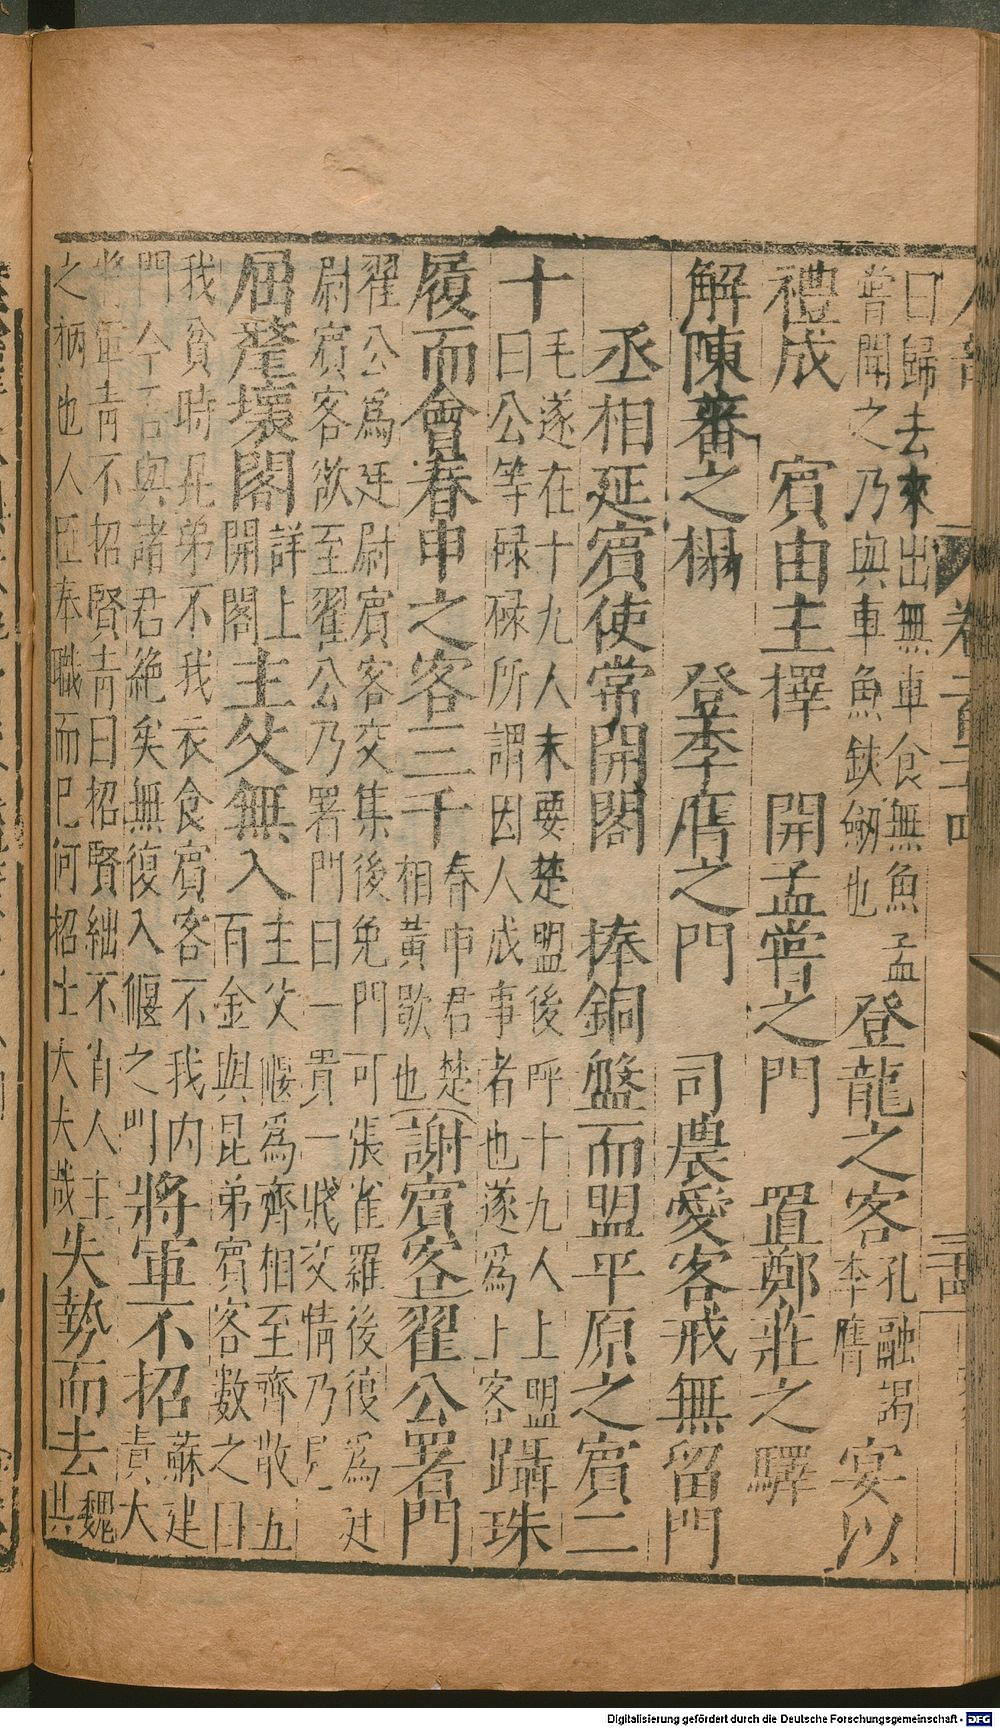 曰歸去來出無車食無魚孟
嘗聞之乃與車魚鋏劒也
登龍之客
孔融謁
李膺
安以
禮成　賓由主擇　開孟嘗之門　置鄭莊之驛
解陳蕃之榻　登李膺之門　司農愛客戒無留門
丞相延賓使常開閣　捧銅盤而盟平原之賓二
十
毛遂在十九人末要楚盟後呼十九人上盟
曰公等碌碌所謂因人成事者也遂為上客
躡珠
履而會春申之客三千
春申君楚
相黃歇也
謝賓客
翟公署門
翟公為廷尉賓客交集後免門可張雀羅後復為廷
尉賓客欲至翟公乃署門曰一貴一賤交情乃見
屈氂壞閣
詳上
開閣
主父無入
主父偃為齊相至齊散五
百金與昆弟賓客數之曰
我貧時昆弟不我衣食賓客不我内
門今吾與諸君絕矣無復入偃之門
將軍不招
蘇建
責大
將軍青不招賢青曰招賢絀不肖人主
之柄也人臣奉職而已何招士大夫哉
失勢而去
魏
其
Digitalisierung gefördert durch die Deutsche Forschungsgemeinschaft - DFG